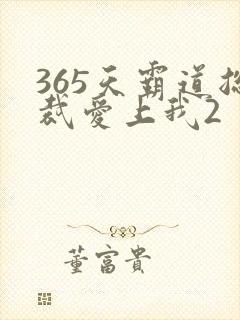 365天霸道总
裁爱上我2
董富貴